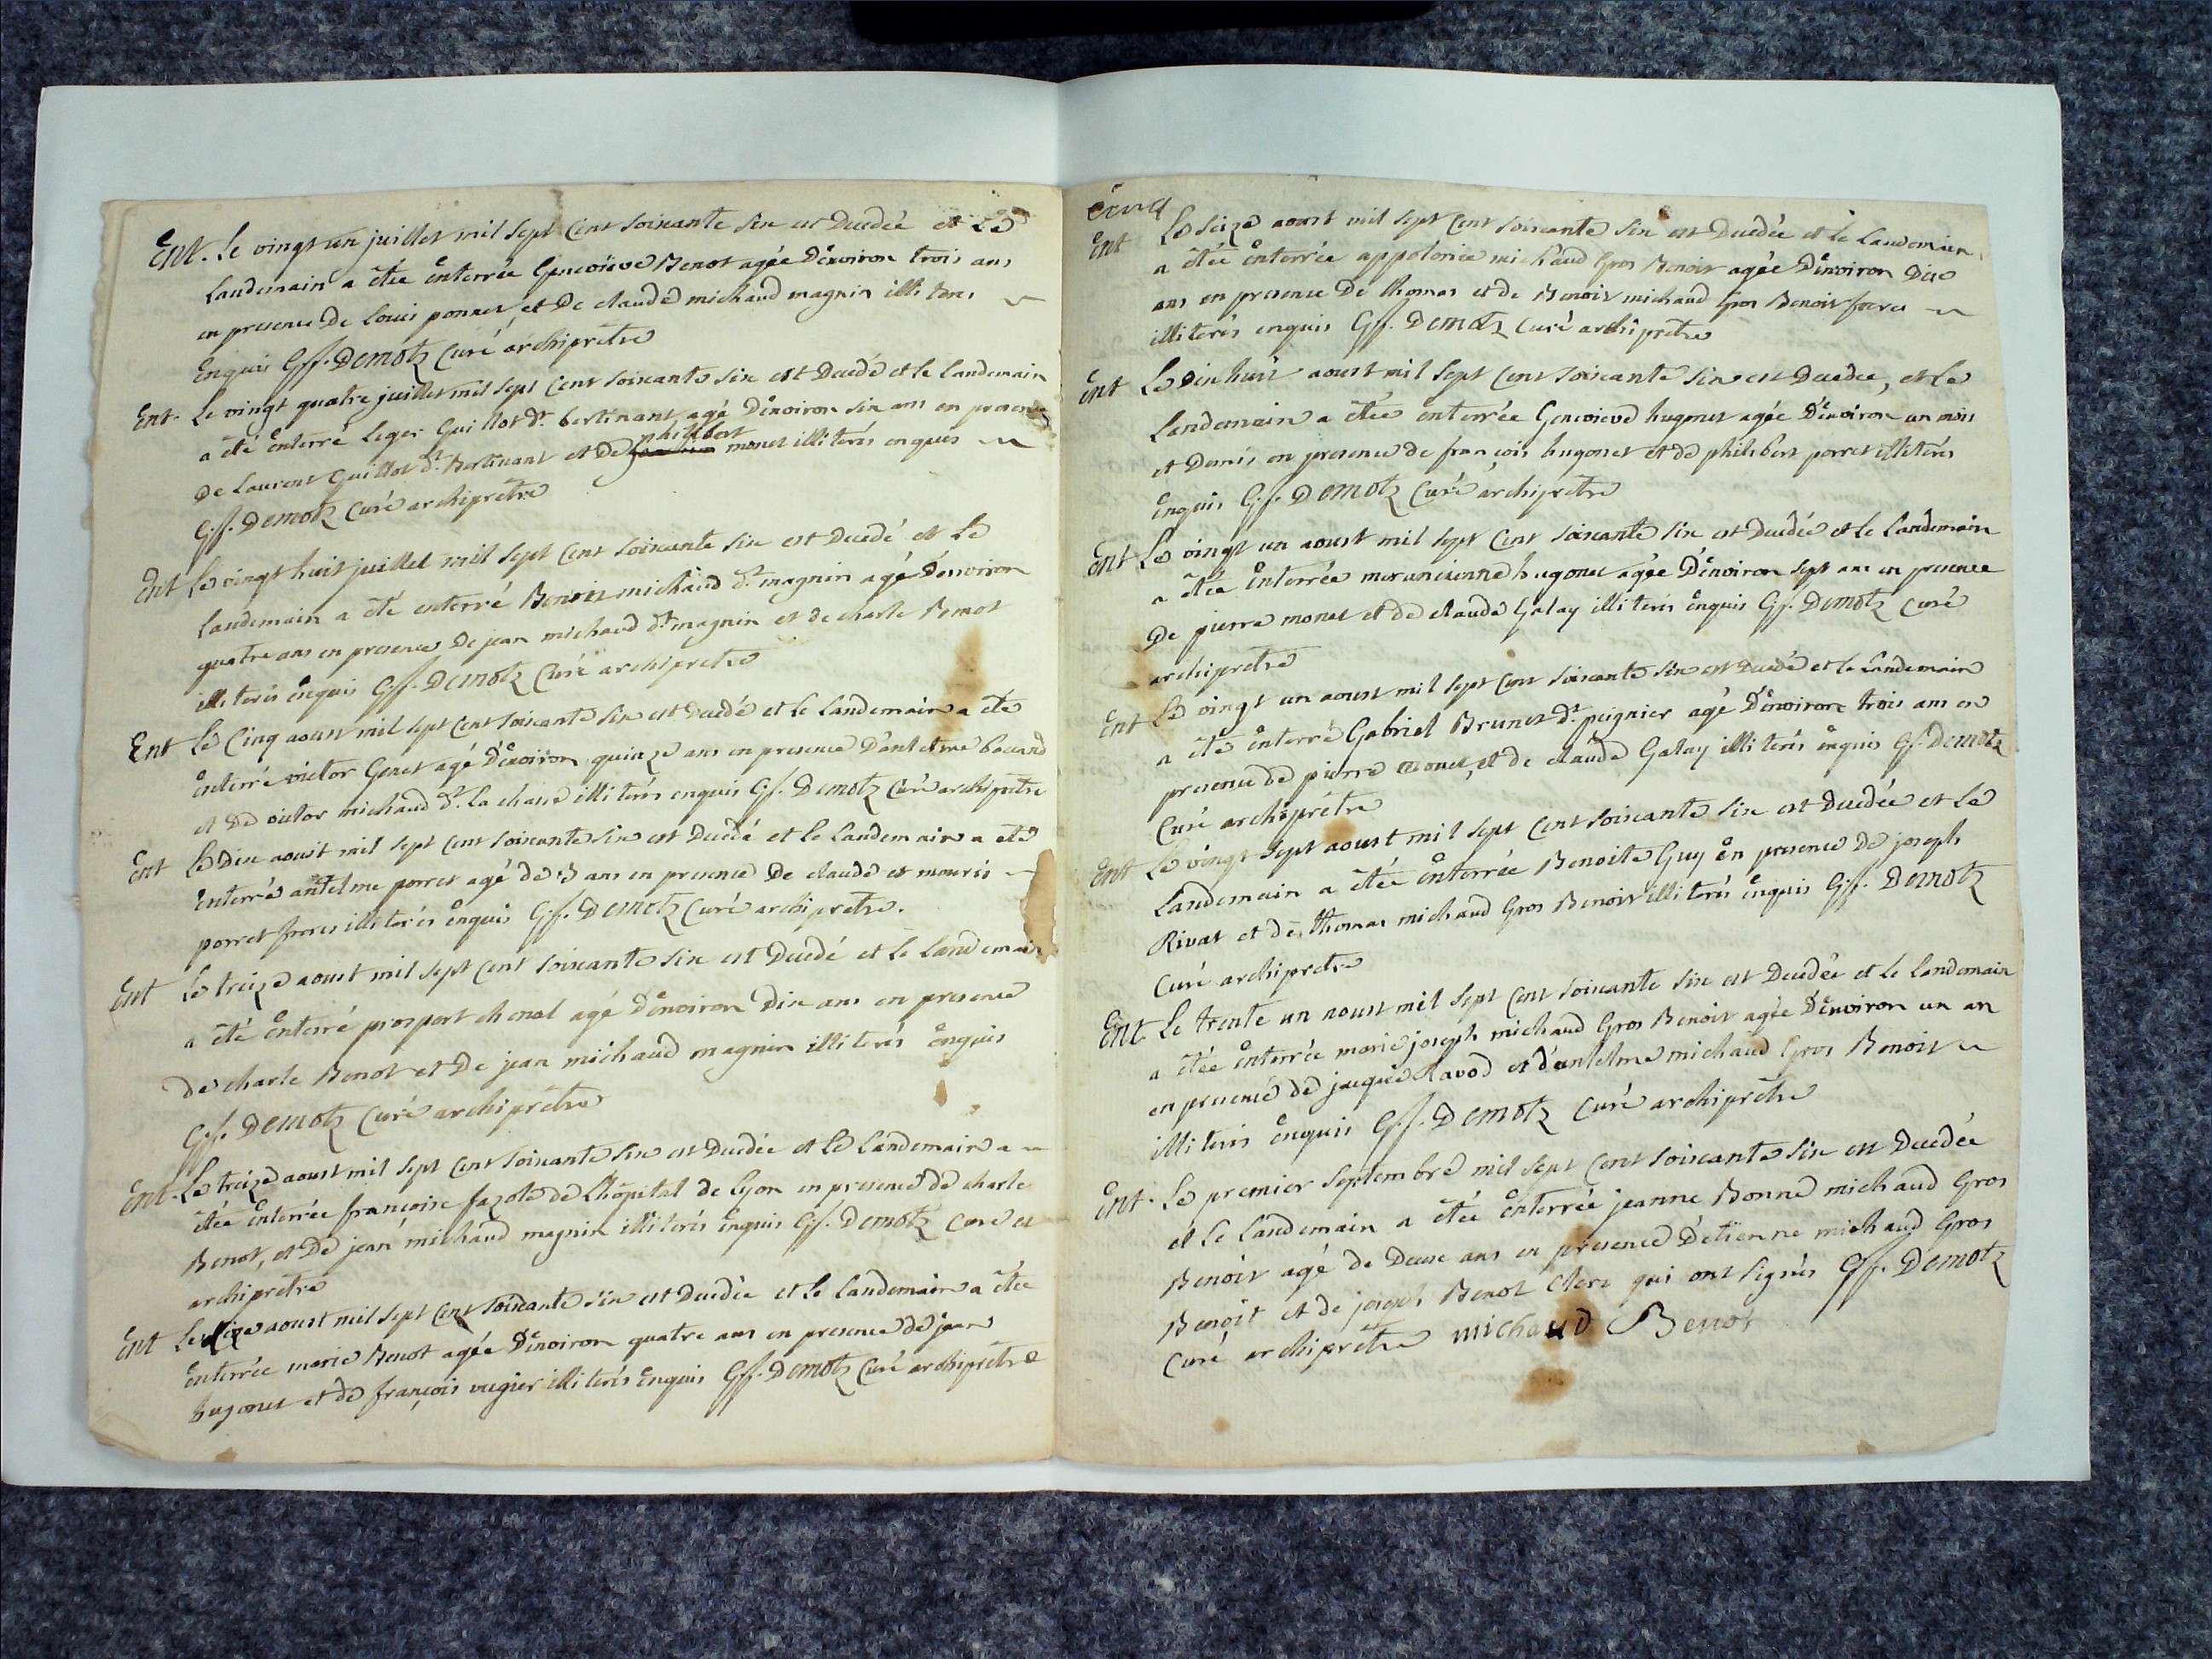 Ent. Le vingt un juillet mil sept Cent soixante six est Decedée et Le
Landemain a étée enterrée Genevieve Benot agée D'environ trois ans
en presence De Louis ponnet et De claude michaud magnin illiteres
enquis Gsf. Demotz Curé archiprêtre
Ent. Le vingt quatre juillet mil sept Cent soixante six est Decedé et le Landemain
a été enterré Leger Guillot dt. bertinant agé D'environ six ans en presence
De Laurent Guillot dt. Bertinant et De philibert monet illiterés enquis
Gsf. Demotz Curé archiprêtre
Ent Le vingt huit juillet mil sept Cent soixante six est Decedé et Le
Landemain a été enterré Benoit michaud dt. magnin agé d'environ
quatre ans en presence De jean michaud dt. magnin et de charle Benot
illiterés enquis Gsf. Demotz Curé archiprêtre
Ent Le Cinq aoust mil sept Cent soixante six est Decedé et le Landemain a été
enterré victor Genet agé D'environ quinze ans en presence D'antelme
et De victor michaud dt. la chasse illiterés enquis Gsf. Demotz Curé archiprêtre
Ent Le Dix aoust mil sept Cent soixante six est Decedé et le Landemain a été
enterré antelme porret agé de 3 ans en presence De claude et mauris
porret freres illiterés enquis Gsf. Demotz Curé archiprêtre.
Ent Le treize aoust mil sept Cent soixante six est Decedé et le Landemain
a été enterré prosport chenal agé D'environ Dix ans en presence
de charle Benot et De jean michaud magnin illiterés enquis
Gsf. Demotz Curé archiprêtre
Ent. Le treize aoust mil sept Cent soixante six est Decedée et le Landemain a
étée enterrée françoise fazole de L'hôpital de Lyon en presence de charle
Benot, et De jean michaud magnin illiterés enquis Gsf. Demotz Curé et
archiprêtre
Ent Le aoust mil sept Cent soixante six est Decedée et le Landemain a étée
enterrée marie Benot agée D'environ quatre ans en presence de jean
hugonet et de françois vugier illiterés enquis Gsf. Demotz Curé archiprêtre
Ent Le seize aoust mil sept Cent soixante six est Decedée et le Landemain
a étée enterrée appolonie michaud Gros Benoit agée D'environ Dix
ans en presence De thomas et de Benoit michaud Gros Benoit freres
illiterés enquis Gsf. Demotz Curé archiprêtre
Ent Le Dixhuit aoust mil sept Cent soixante six est Decedee, et Le
Landemain a étée enterrée Genevieve hugonet agée D'environ un mois
et Demis en presence de françois hugonet et de philibert porret illiterés
enquis Gsf. Demotz Curé archiprêtre
Ent Le vingt un aoust mil sept Cent soixante six est Decedée et le Landemain
a étée enterrée hugonet agée D'environ sept ans en presence
De pierre monet et de claude Galay illiterés enquis Gsf. Demotz Curé
archiprêtre
Ent Le vingt un aoust mil sept Cent soixante six est Decedé et le Landemain
a été enterré Gabriel Brunet dt. peignier agé D'environ trois ans en
presence de pierre monet, et de claude Galay illiterés enquis Gsf. Demotz
Curé archiprêtre
Ent Le vingt sept aoust mil sept Cent soixante six est Decedée et Le
Landemain a étée enterrée Benoite Guy en presence De joseph
Rivat et de thomas michaud Gros Benoit illiterés enquis Gsf. Demotz
Curé archiprêtre
Ent Le trente un aoust mil sept Cent soixante six est Decedée et le Landemain
a étée enterrée marie joseph michaud Gros Benoit agée D'environ un an
en presence de jacque Ravod et d'antelme michaud Gros Benoit
illiterés enquis Gsf. Demotz Curé archiprêtre
Ent. Le premier septembre mil sept Cent soixante six est Decedée
et le Landemain a étée enterrée jeanne Bonne michaud Gros
Benoit agé de Deux ans en presence D'etienne michaud Gros
Benoit et de joseph Benot Clerc qui ont signés Gsf. Demotz
Curé archiprêtre michaud Benot